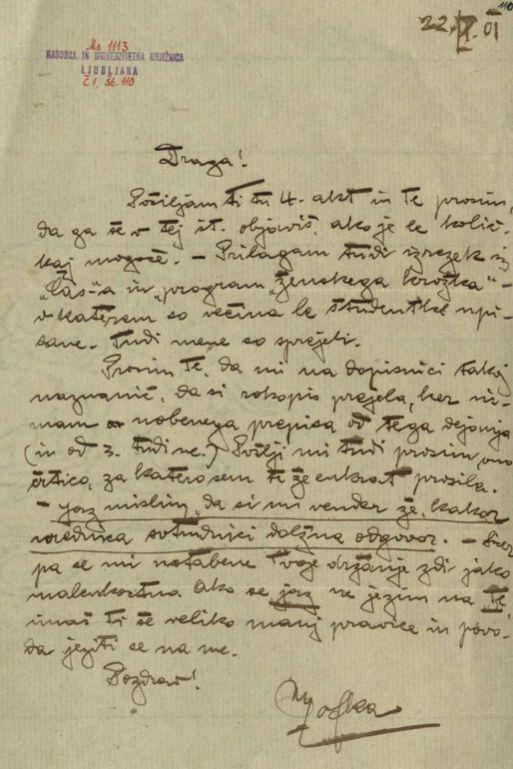 110
22. X. 01
Ms 1113
NARODNA IN UNIVERZITETNA KNJIŽNICA
LJUBLJANA
Č 1, št. 110
Draga!
Pošiljam Ti tu 4. akt in te prosim,
da ga še v tej št. objaviš, ako je le količ-
kaj mogoče. – Prilagam tudi izrezek iz
„Čas“a in program „ženskega krožka“ –
v katerem so večina le študentke vpi-
sane. Tudi mene so sprejeli.
Prosim te, da mi na dopisnici takoj
naznaniš, da si rokopis prejela, ker ni-
mam nobenega prepisa od tega dejanja
(in od 3. tudi ne.) Pošlji mi tudi prosim, ono
črtico, za katero sem te že enkrat prosila.
– jaz mislim, da si mi vendar že, kakor
urednica sotrudnici dolžna odgovor. – Sicer
pa se mi notabene Tvoje držanje zdi jako
malenkostno. Ako se jaz ne jezim na te,
imaš ti še veliko manj pravice in povo-
da jeziti se na me.
Pozdrav!
Zofka